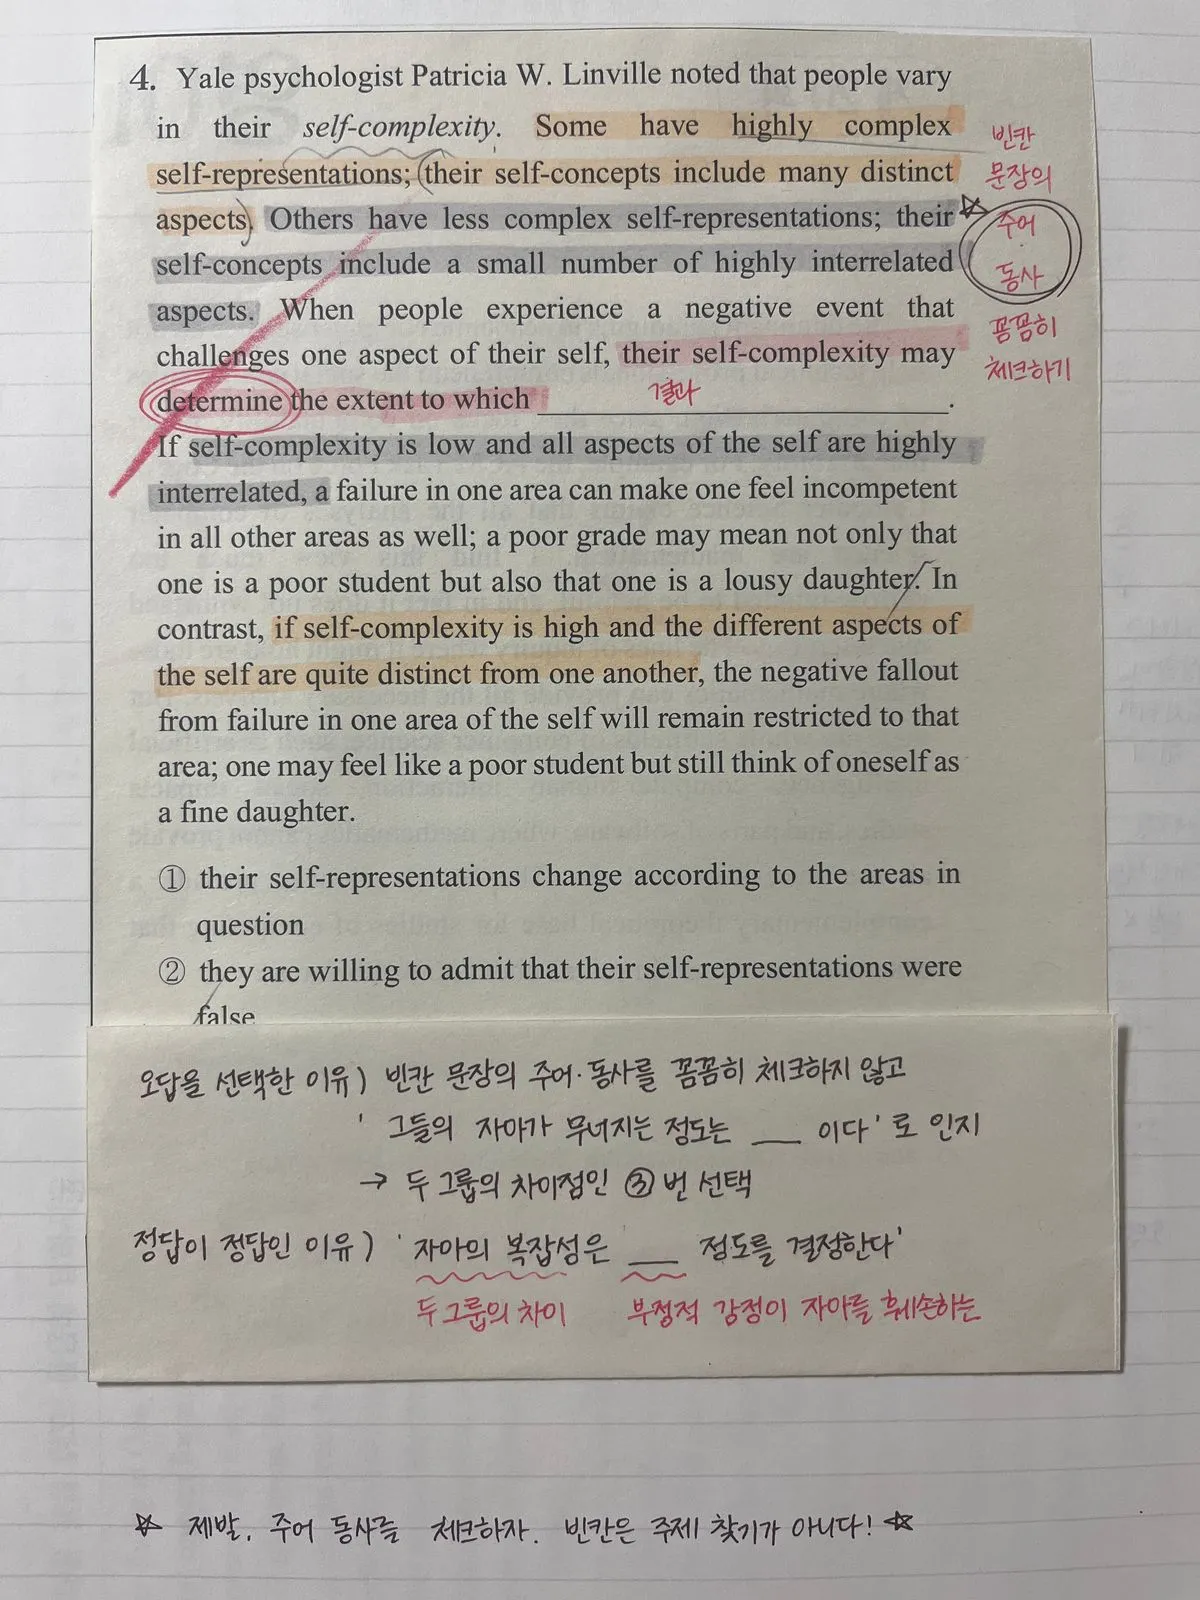 4. Yale psychologist Patricia W. Linville noted that people vary
in their self-complexity. Some have highly complex
self-representations; their self-concepts include many distinct
aspects. Others have less complex self-representations; their
self-concepts include a small number of highly interrelated
aspects. When people experience a negative event that
challenges one aspect of their self, their self-complexity may
determine the extent to which 결과 .
If self-complexity is low and all aspects of the self are highly
interrelated, a failure in one area can make one feel incompetent
in all other areas as well; a poor grade may mean not only that
one is a poor student but also that one is a lousy daughter. In
contrast, if self-complexity is high and the different aspects of
the self are quite distinct from one another, the negative fallout
from failure in one area of the self will remain restricted to that
area; one may feel like a poor student but still think of oneself as
a fine daughter.
빈칸
문장의
☆ 주어
동사
꼼꼼히
체크하기
① their self-representations change according to the areas in
question
② they are willing to admit that their self-representations were
false
오답을 선택한 이유) 빈칸 문장의 주어·동사를 꼼꼼히 체크하지 않고
' 그들의 자아가 무너지는 정도는 ___ 이다' 로 인지
→ 두 그룹의 차이점인 ③번 선택
정답이 정답인 이유) '자아의 복잡성은 ___ 정도를 결정한다'
두 그룹의 차이 부정적 감정이 자아를 훼손하는
☆ 제발, 주어 동사를 체크하자. 빈칸은 주제 찾기가 아니다! ☆